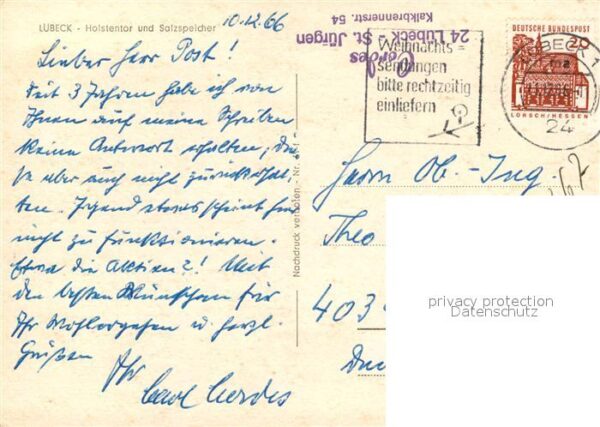 LÜBECK - Holstentor und Salzspeicher
10.12.66
Lieber Herr Post!
Seit 3 Jahren habe ich von
Ihnen auf meine Schreiben
keine Antwort erhalten, die
se aber auch nicht zurückerhal-
ten. Irgend etwas scheint hier
nicht zu funktionieren.
Etwa die Aktien?! Mit
den besten Wünschen für
Ihr Wohlergehen u. herzl.
Grüßen
Ihr
Carl Cordes
Nachdruck verboten - Nr.
24 Lübeck - St. Jürgen
Kalkbrennerstr. 54
Weihnachts-
Sendungen
bitte rechtzeitig
einliefern
LÜBECK 1
24
DEUTSCHE BUNDESPOST
20
LORSCH/HESSEN
Herrn Ob.-Ing.
Theo
403
privacy protection
Datenschutz